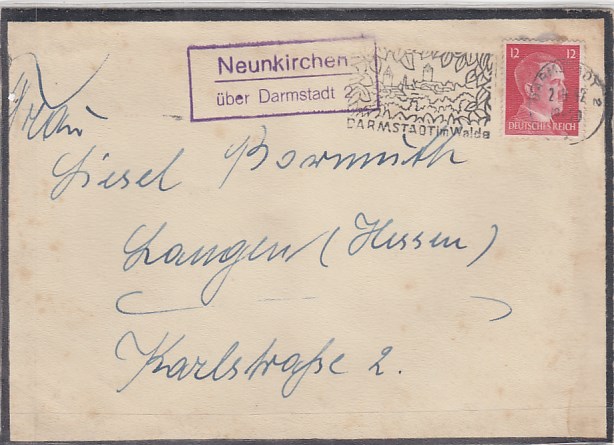 Neunkirchen
über Darmstadt 2
DARMSTADT im Walde
12 12
DEUTSCHES REICH
Frau
Liesel Bormuth
Langen (Hessen)
Karlstraße 2.